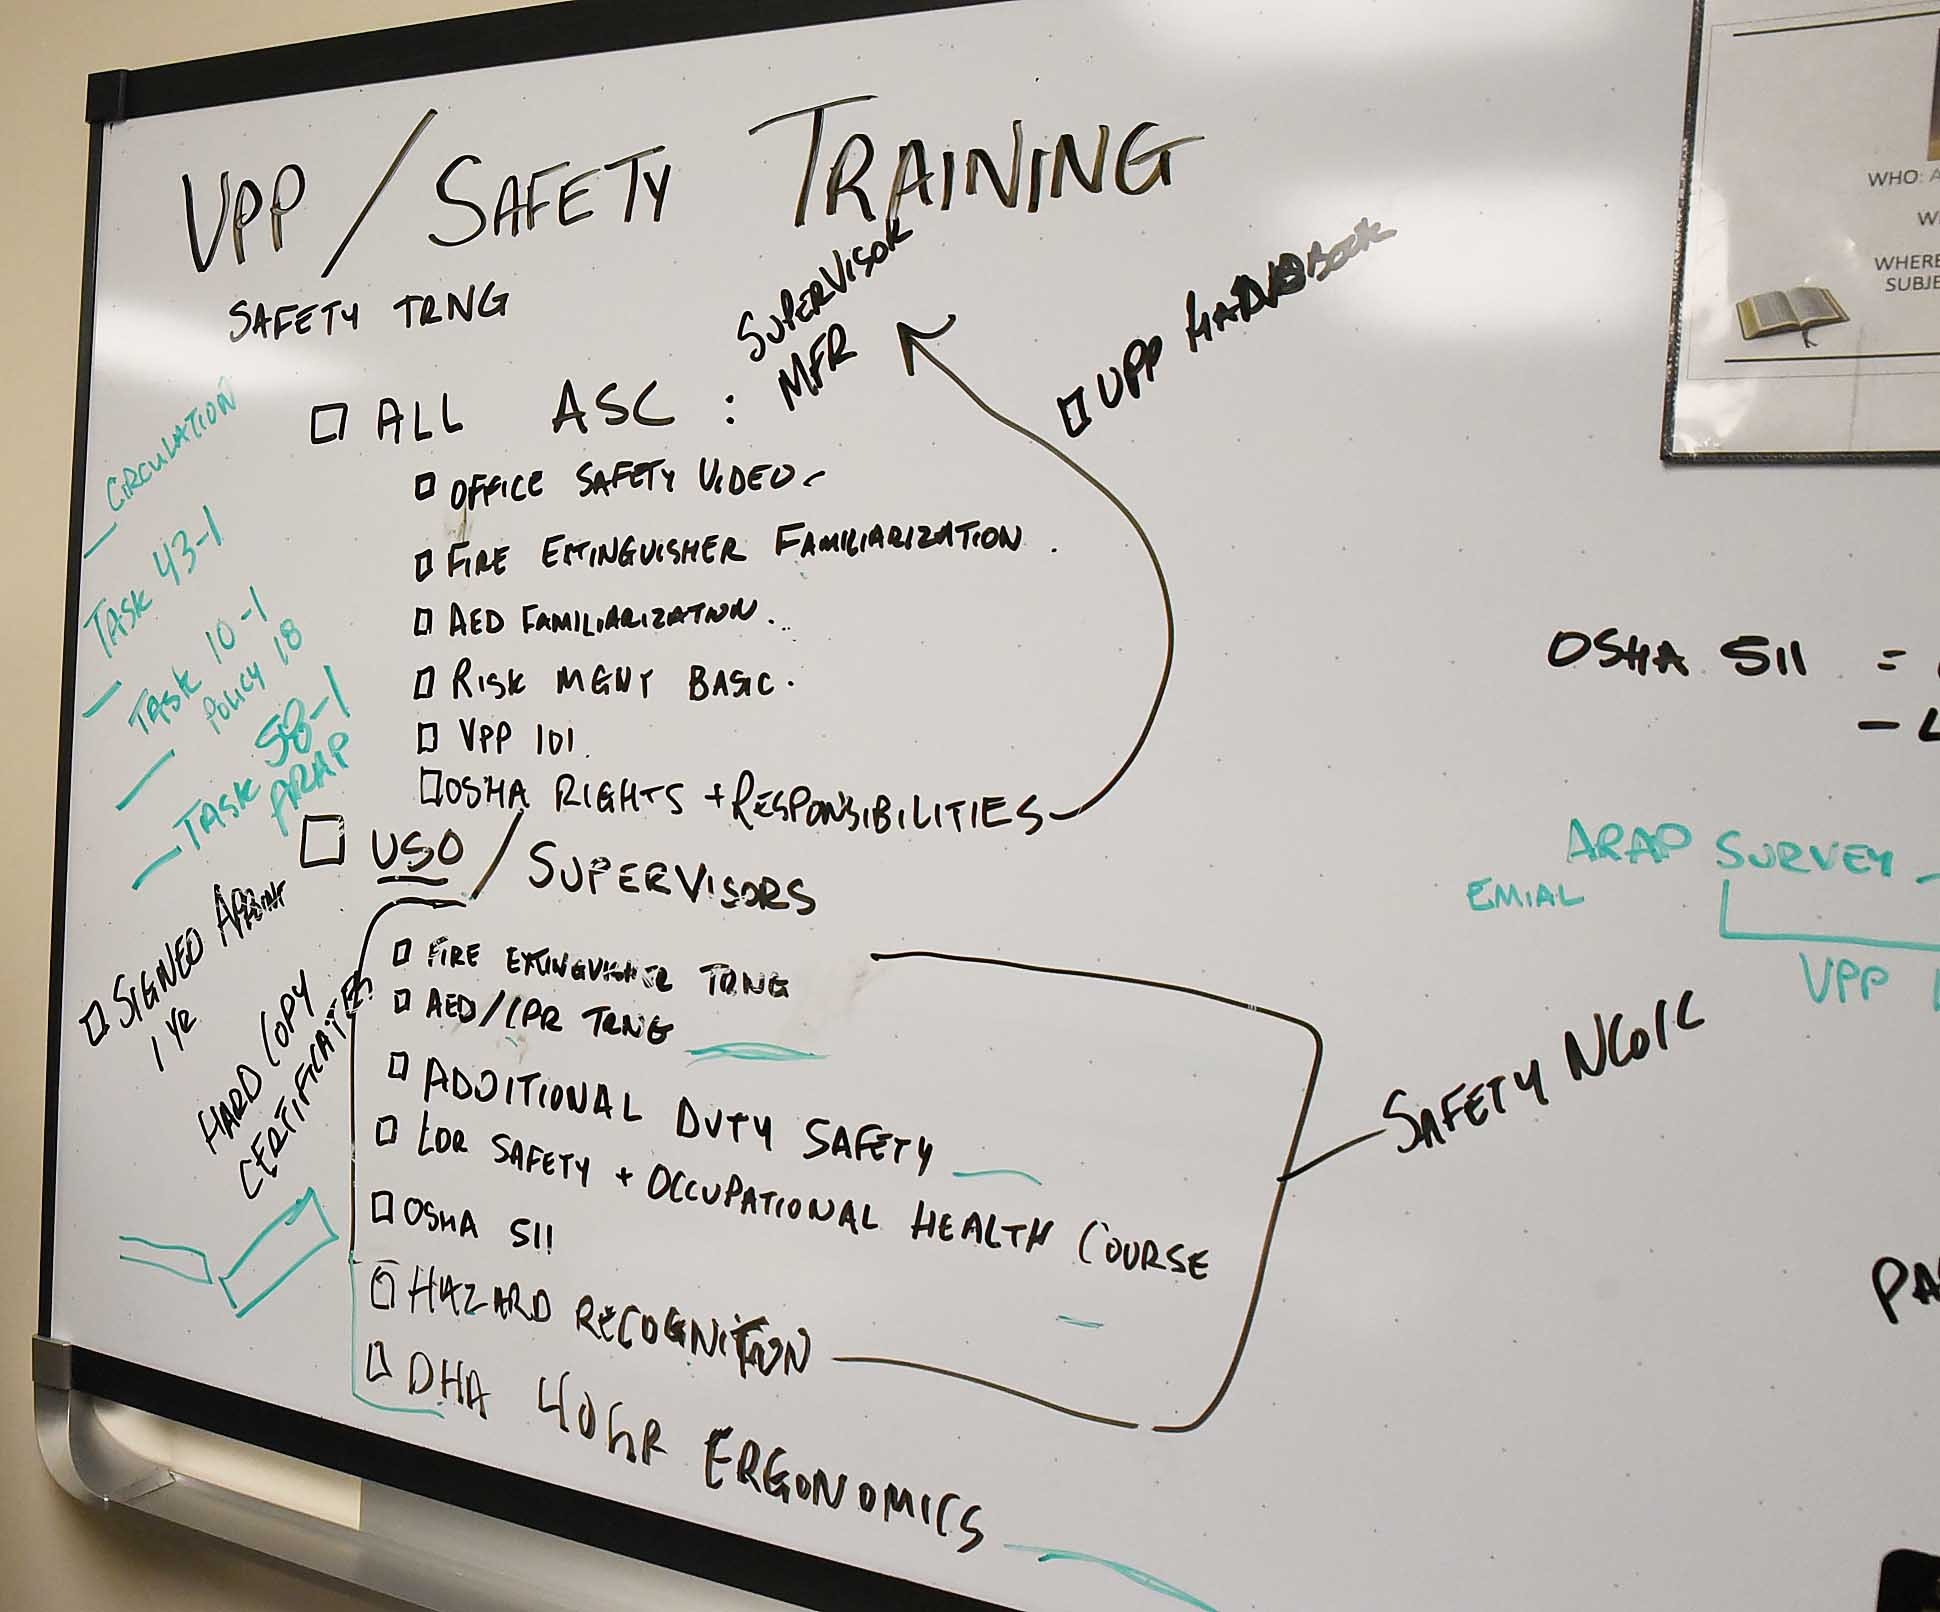 VPP / SAFETY TRAINING
SAFETY TRNG
SUPERVISOR
MFR
ALL ASC :
VPP HANDBOOK
OFFICE SAFETY VIDEO
FIRE EXTINGUISHER FAMILIARIZATION .
AED FAMILIARIZATION ..
RISK MGNT BASIC .
VPP 101 .
OSHA RIGHTS + RESPONSIBILITIES
CIRCULATION
TASK 43-1
TASK 10-1
POLICY 18
TASK 58-1
ARAP
USO / SUPERVISORS
FIRE EXTINGUISHER TRNG
AED/CPR TRNG
ADDITIONAL DUTY SAFETY
SAFETY + OCCUPATIONAL HEALTH COURSE
OSHA 511
HAZARD RECOGNITION
DHA 40hR ERGONOMICS
SIGNED APPOINT
1 YR
HARD COPY
CERTIFICATES
SAFETY NCOIC
OSHA 511 =
ARAP SURVEY -
EMIAL
VPP
PA
WHO: A
W
WHERE
SUBJE